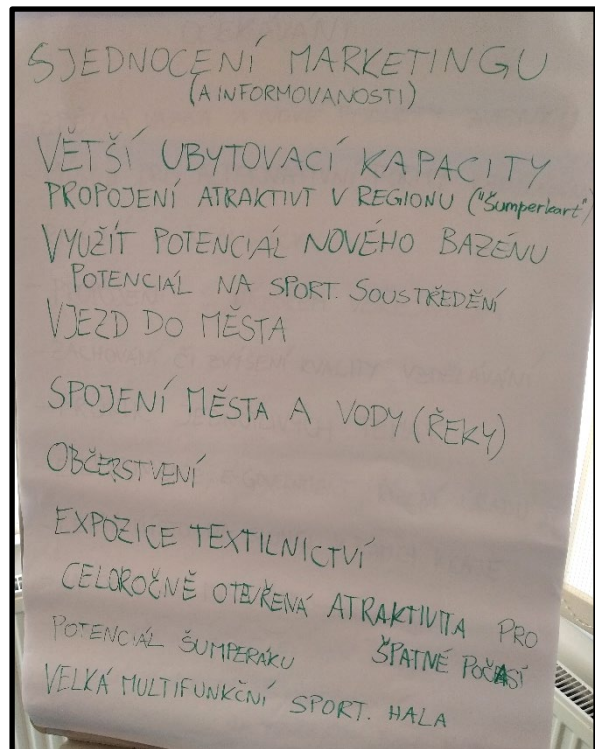 SJEDNOCENÍ MARKETINGU
(A INFORMOVANOSTI)
VĚTŠÍ UBYTOVACÍ KAPACITY
PROPOJENÍ ATRAKTIVT V REGIONU ("Šumperkart")
VYUŽÍT POTENCIÁL NOVÉHO BAZÉNU
POTENCIÁL NA SPORT. SOUSTŘEDĚNÍ
VJEZD DO MĚSTA
SPOJENÍ MĚSTA A VODY (ŘEKY)
OBČERSTVENÍ
EXPOZICE TEXTILNICTVÍ
CELOROČNĚ OTEVŘENÁ ATRAKTIVITA PRO
ŠPATNÉ POČASÍ
POTENCIÁL ŠUMPERÁKU
VELKÁ MULTIFUNKČNÍ SPORT. HALA